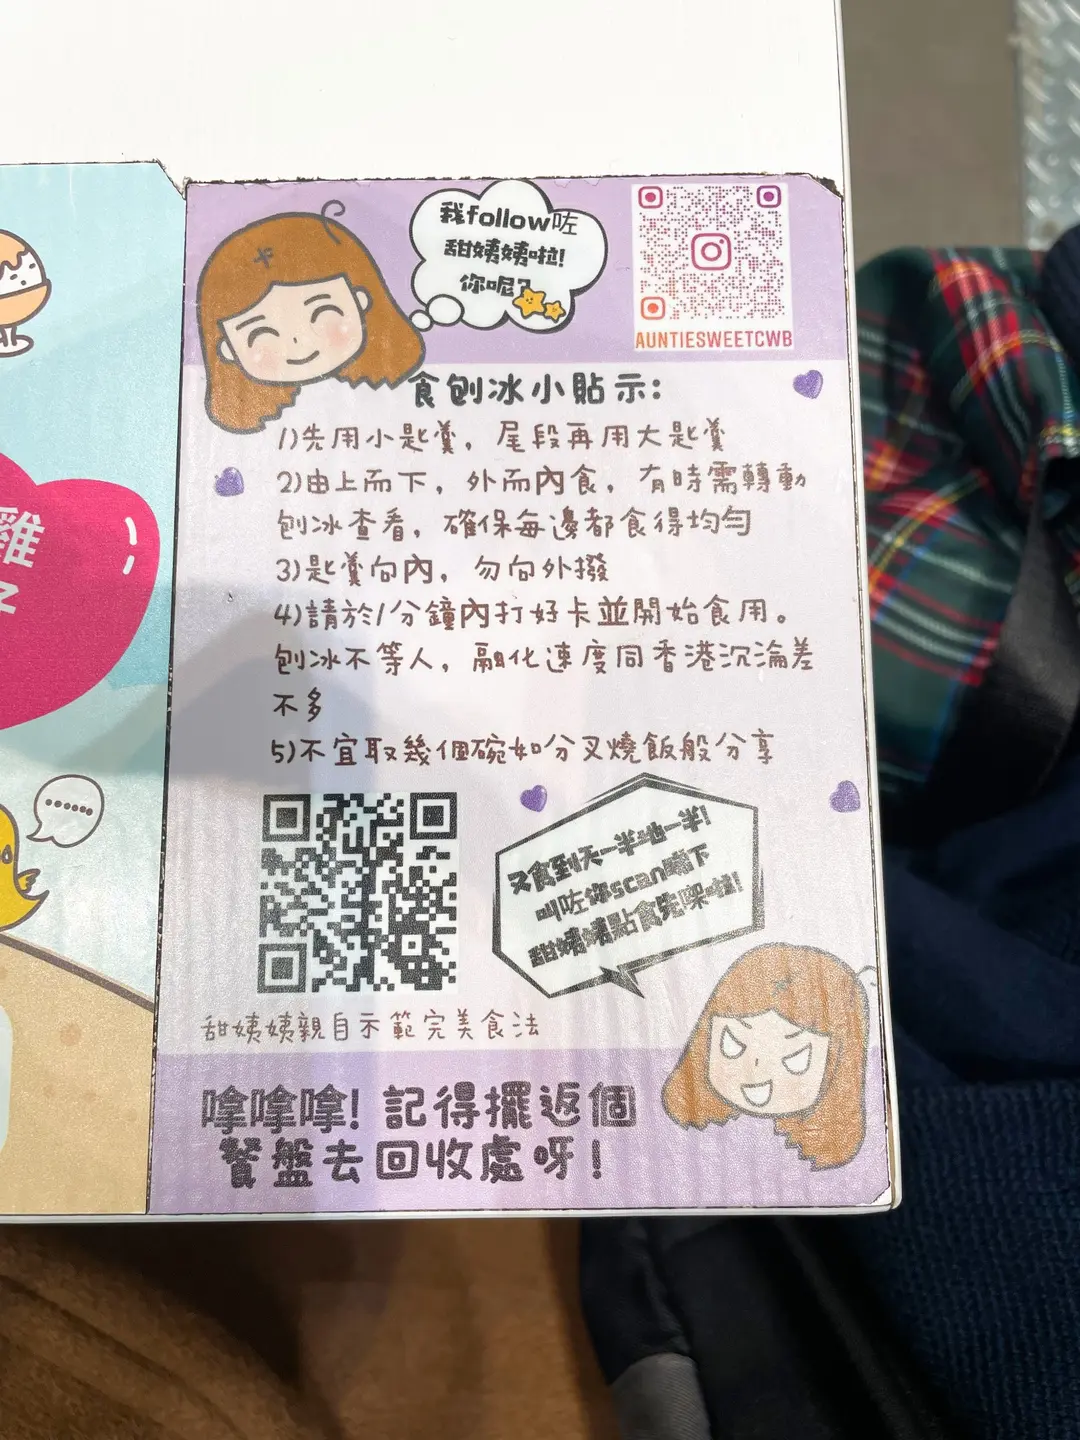 我follow咗
甜姨姨啦!
你呢?
AUNTIESWEETCWB
食刨冰小貼示:
1)先用小匙羹，尾段再用大匙羹
2)由上而下，外而內食，有時需轉動
刨冰查看，確保每邊都食得均勻
3)匙羹向內，勿向外撥
4)請於1分鐘內打好卡並開始食用。
刨冰不等人，融化速度同香港沉淪差
不多
5)不宜取幾個碗如分叉燒飯般分享
雞
......
又食到天一半地一半!
叫咗你scan嗰下
甜姨姨點食先㗎啦!
甜姨姨親自示範完美食法
嗱嗱嗱! 記得擺返個
餐盤去回收處呀!